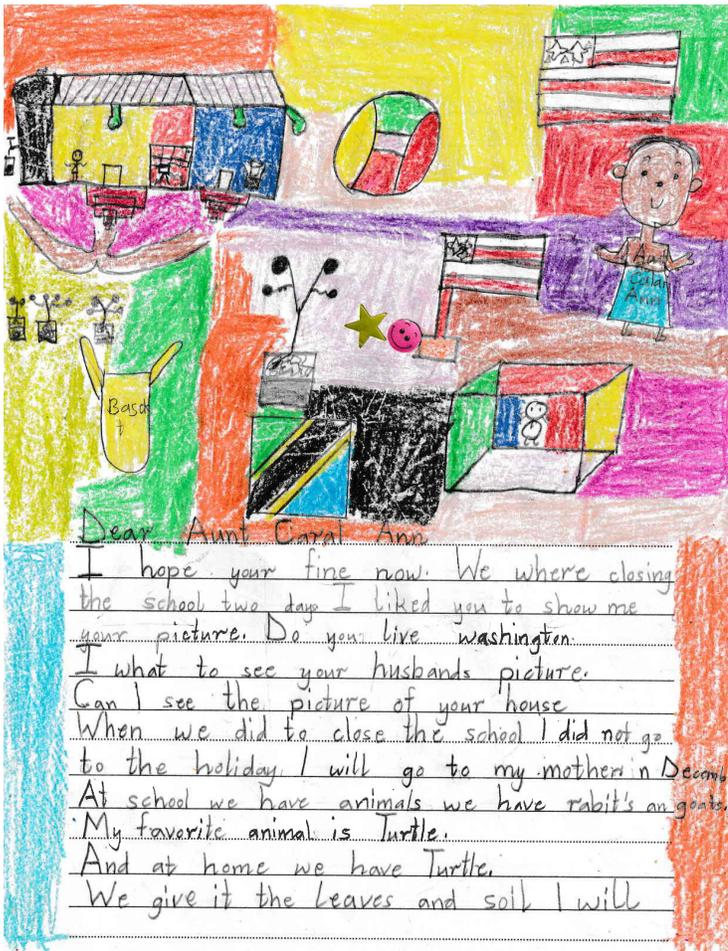 Aunt
Calal
Ann
Basd
t
Dear Aunt Caral Ann
I hope your fine now. We where closing
the school two days I liked you to show me
your picture. Do you live washington.
I what to see your husbands picture.
Can I see the picture of your house
When we did to close the school I did not go
to the holiday. I will go to my mother in Decemb
At school we have animals we have rabit's an goats.
My favorite animal is Turtle.
And at home we have Turtle.
We give it the Leaves and soil I will